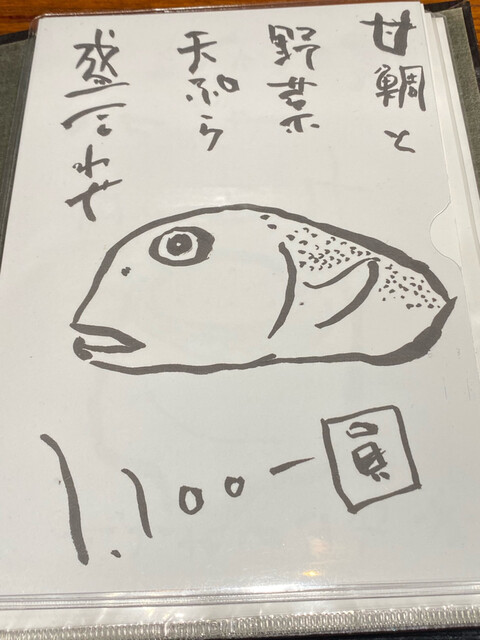 甘鯛と
野菜
天ぷら
盛合わせ
1.100-